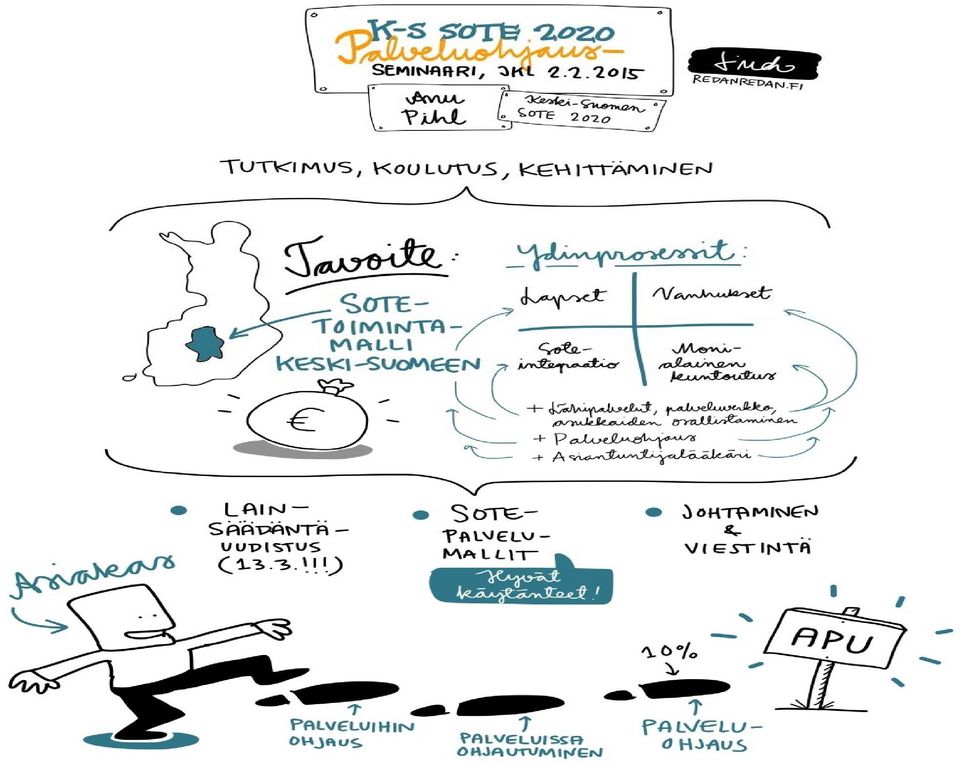 K-S SOTE 2020
Palveluohjaus-
SEMINAARI, JKL 2.2.2015
REDANREDAN.FI
Anu
Pihl
Keski-Suomen
SOTE 2020
TUTKIMUS, KOULUTUS, KEHITTÄMINEN
Tavoite:
SOTE-
TOIMINTA-
MALLI
KESKI-SUOMEEN
€
Ydinprosessit:
Lapset
Vanhukset
Sote-
integraatio
Moni-
alainen
kuntoutus
+ Lähipalvelut, palveluverkko,
asukkaiden osallistaminen
+ Palveluohjaus
+ Asiantuntijalääkäri
LAIN-
SÄÄDÄNTÄ-
UUDISTUS
(13.3.!!!)
SOTE-
PALVELU-
MALLIT
Hyvät
käytänteet!
JOHTAMINEN
&
VIESTINTÄ
Asiakas
APU
10%
PALVELUIHIN
OHJAUS
PALVELUISSA
OHJAUTUMINEN
PALVELU-
OHJAUS